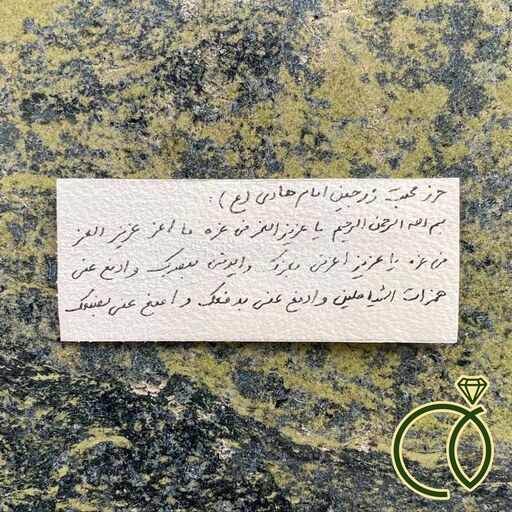 حرز محبت زوجین امام هادی (ع) :
بسم الله الرحمن الرحیم یا عزیز العز فی عزه ما اعز عزیز العز
فی عزه یا عزیز اعزنی بعزک و ایدنی بنصرک و ادفع عنی
همزات الشیاطین و ادفع عنی بدفعک و امنع عنی بصنعک